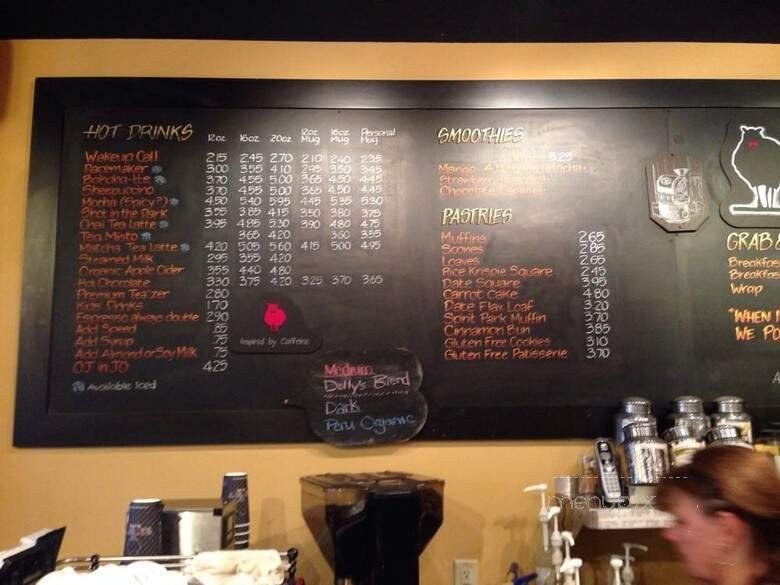 HOT DRINKS 12oz 16oz 20oz 12oz Mug 16oz Mug Personal Mug
Wakeup Call 2.15 2.45 2.70 2.10 2.40 2.35
Racemaker 3.00 3.55 4.10 2.95 3.50 3.45
3.70 4.55 5.00 3.65 4.50 4.45
Sheepuccino 3.70 4.55 5.00 3.65 4.50 4.45
Mocha (Spicy?) 4.50 5.40 5.95 4.45 5.35 5.30
Shot in the Dark 3.55 3.85 4.15 3.50 3.80 3.75
Chai Tea Latte 3.95 4.85 5.30 3.90 4.80 4.75
Tea Misto 3.65 4.20 3.60 3.55
Matcha Tea Latte 4.20 5.05 5.60 4.15 5.00 4.95
Steamed Milk 2.95 3.55 4.20
Organic Apple Cider 3.55 4.40 4.80
Hot Chocolate 3.30 3.75 4.20 3.25 3.70 3.65
Premium Tea'zer 2.80
Kids' Drinks 1.70
Espresso always double 2.90
Add Speed .85
Add Syrup .75
Add Almond or Soy Milk .75
OJ in JO 4.25
Available Iced
Inspired by Caffeine
Medium
Dolly's Blend
Dark
Peru Organic
SMOOTHIES
5.25
Mango
Strawberry
Chocolate Caramel
PASTRIES
Muffins 2.65
Scones 2.85
Loaves 2.65
Rice Krispie Square 2.45
Date Square 3.95
Carrot Cake 4.80
Date Flax Loaf 3.20
Spirit Park Muffin 3.70
Cinnamon Bun 3.85
Gluten Free Cookies 3.10
Gluten Free Patisserie 3.70
GRAB &
Breakfas
Breakfas
Wrap
"WHEN I
WE PO
menupix